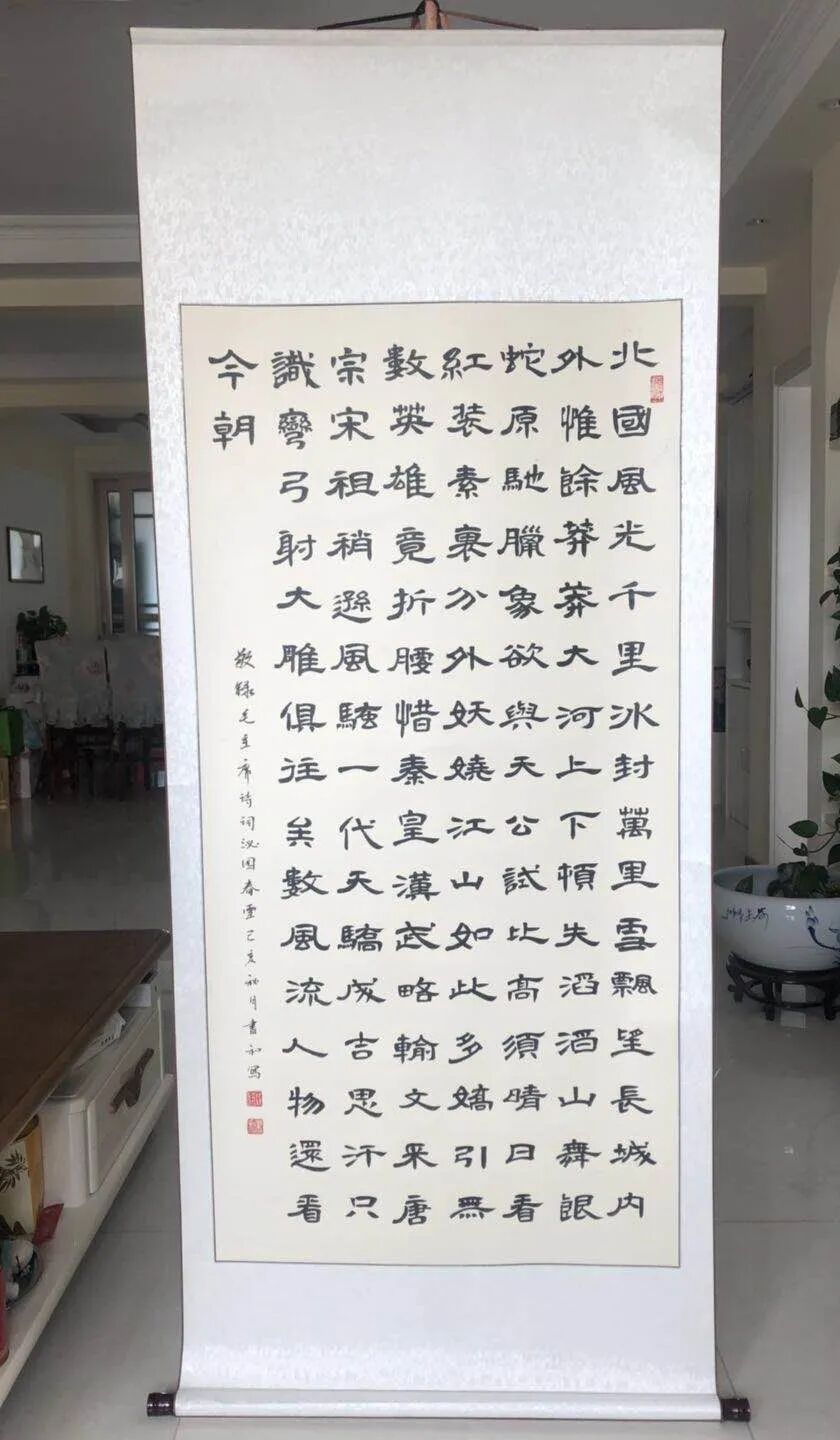 北國風光千里冰封萬里雪飄望長城内
外惟餘莽莽大河上下頓失滔滔山舞銀
蛇原馳臘象欲與天公試比高須晴日看
紅装素裹分外妖嬈江山如此多嬌引無
數英雄竟折腰惜秦皇漢武略輸文采唐
宗宋祖稍遜風騷一代天驕成吉思汗只
識彎弓射大雕俱往矣數風流人物還看
今朝
敬録毛主席诗词沁园春雪己亥秋月書和寫